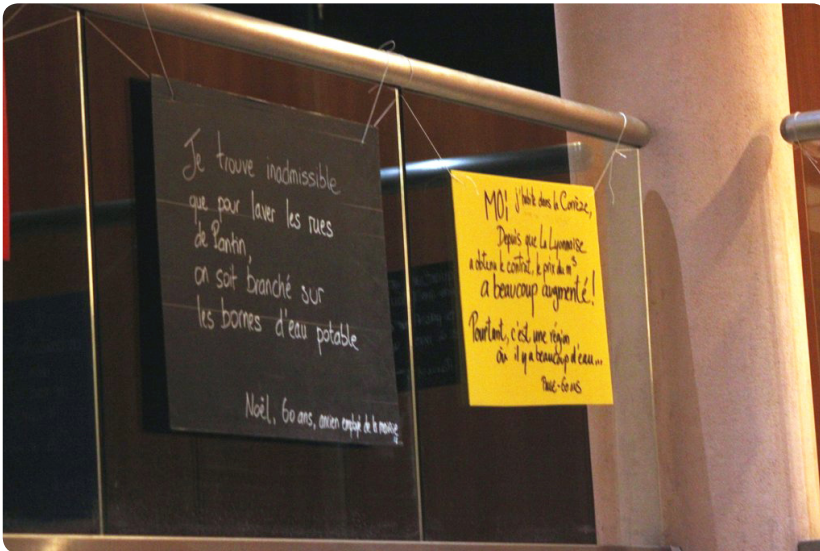 Je trouve inadmissible
que pour laver les rues
de Pantin,
on soit branché sur
les bornes d'eau potable
Noël, 60 ans, ancien employé de la mairie
MOI j'habite dans la Corrèze,
Depuis que la Lyonnaise
a obtenu le contrat, le prix du m³
a beaucoup augmenté!
Pourtant, c'est une région
où il y a beaucoup d'eau...
60 ans